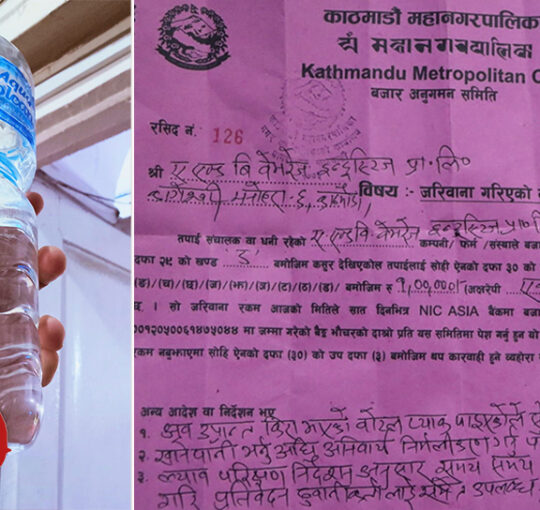 Aqua
काठमाडौं महानगरपालिका
Kathmandu Metropolitan C
बजार अनुगमन समिति
रसिद नं. 126
श्री ए एण्ड बि बेभरेज इन्डस्ट्रिज प्रा॰लि॰
विषय :- जरिवाना गरिएको
तपाईं संचालक वा धनी रहेको ए एण्ड बि बेभरेज इन्डस्ट्रिज प्रा॰ कम्पनी/ फर्म /संस्थाले बजा
दफा २९ को खण्ड ङ बमोजिम कसुर देखिएकोले तपाईंलाई सोही ऐनको दफा ३० को
(ङ)/(च)/(छ)/(ज)/(झ)/(ञ)/(ट)/(ठ)/(ड) बमोजिम रु १,००,०००/- (अक्षरेपी ए
छ । सो जरिवाना रकम आजको मितिले सात दिनभित्र NIC ASIA बैंकमा बजा
मा जम्मा गरेको बैङ्क भौचरको दाश्रो प्रति यस समितिमा पेश गर्नु हुन यो
रकम नबुझाएमा सोहि ऐनको दफा (३०) को उप दफा (३) बमोजिम थप कारवाही हुने व्यहोरा
अन्य आदेश वा निर्देशन भए
१. अब उप्रान्त बोटल प्याक
२. खानेपानी भर्नु अघि अनिवार्य निर्मलीकरण गर्नु
३. ल्याब परिक्षण निर्देशन अनुसार समय समय
गरि प्रतिवेदन समेत उपलब्ध